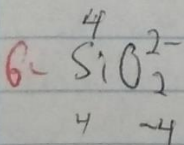 4
6- SiO₂²⁻
4 -4